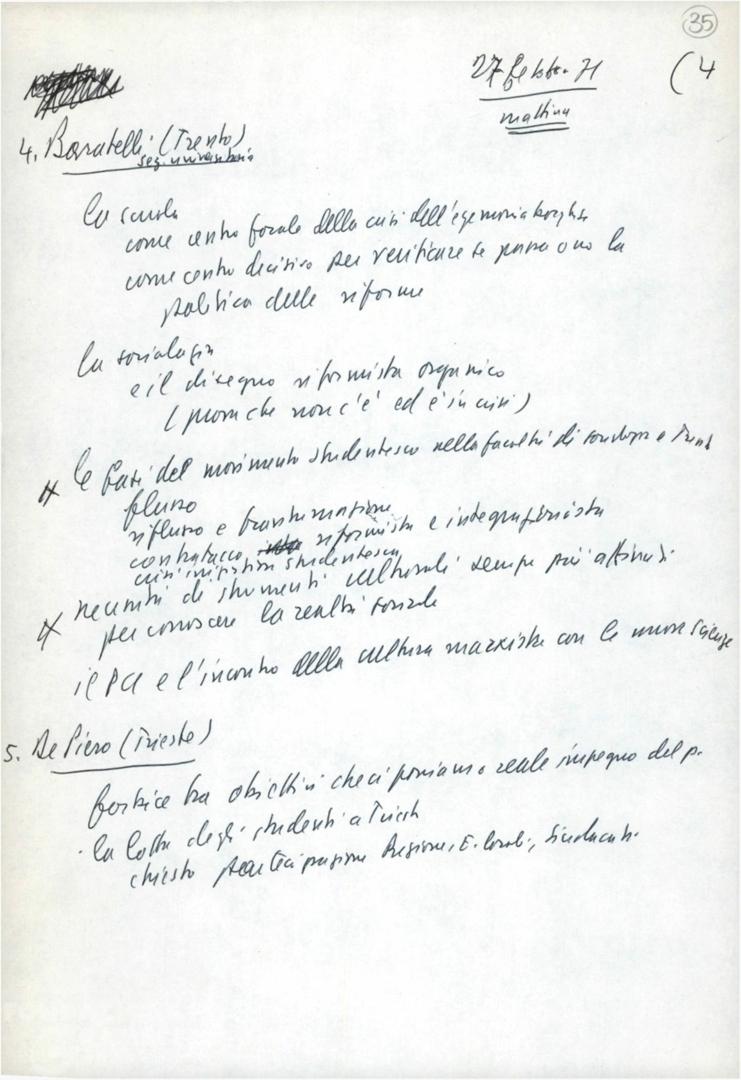 35
27 febbr. 71 (4
mattina
4. Barratelli (Trento)
sez. universitaria
la scuola
come centro focale della crisi dell'egemonia borghese
come centro decisivo per verificare se passa o no la
politica delle riforme
la sociologia
e il disegno riformista organico
(prova che non c'è ed è in crisi)
le fasi del movimento studentesco nella facoltà di sociologia a Trento
flusso
riflusso e trasformazione
contrattacco riformista e integrazionista
crisi studentesca
necessità di strumenti culturali sempre più affinati
per conoscere la realtà sociale
il PCI e l'incontro della cultura marxista con le nuove scienze
5. De Piero (Trieste)
forbice tra obiettivi che ci poniamo e reale impegno del p.
· la lotta degli studenti a Trieste
chiesto partecipazione Regione, E. locali, Sindacati.